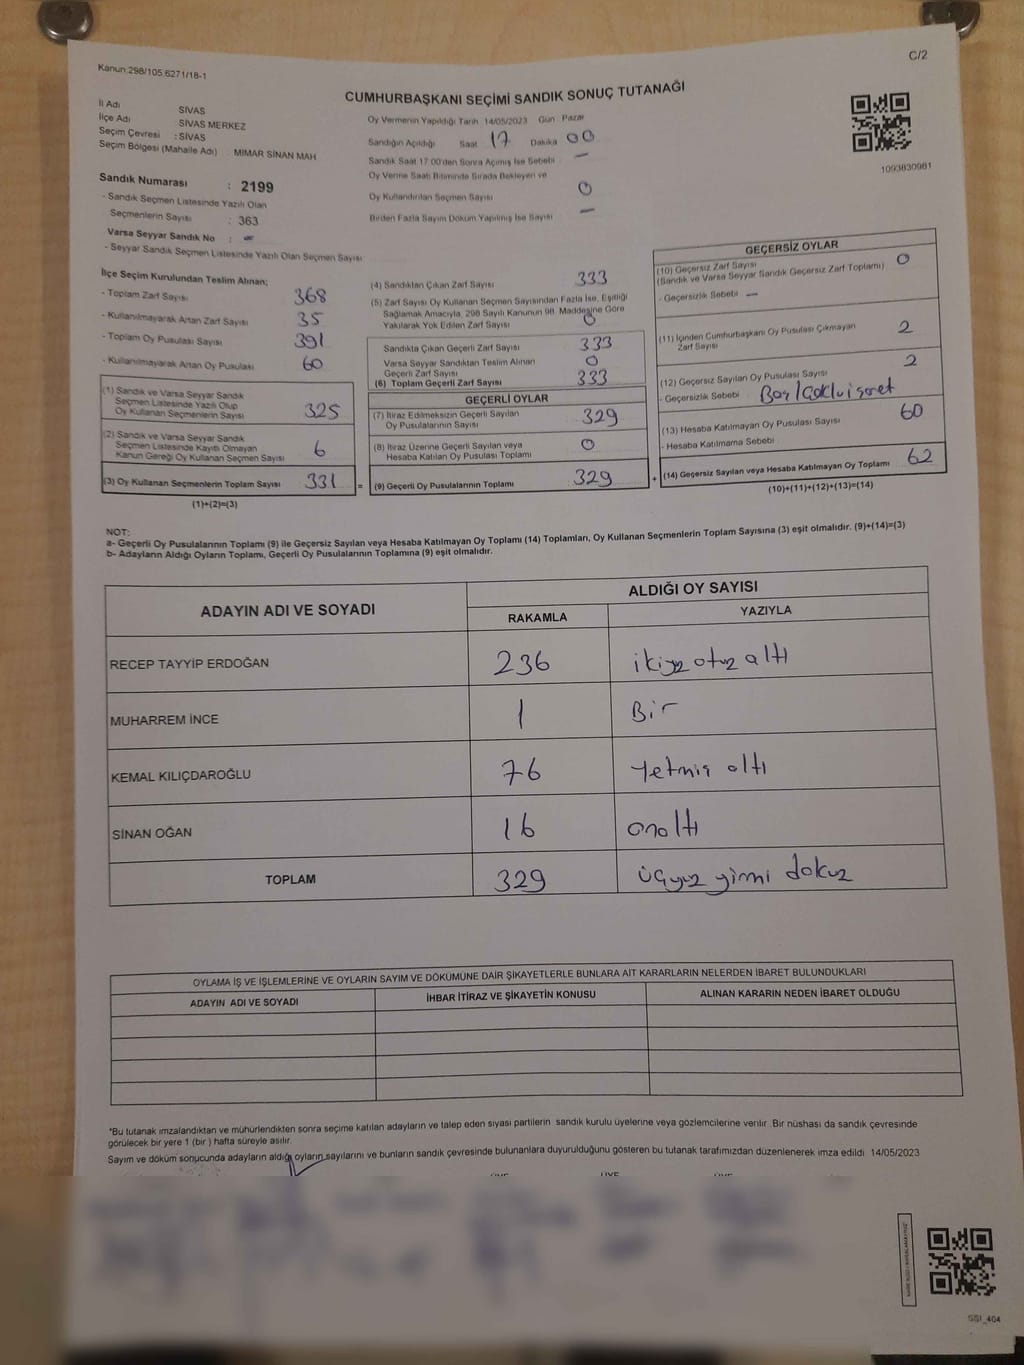 Kanun:298/105.6271/18-1
C/2
CUMHURBAŞKANI SEÇİMİ SANDIK SONUÇ TUTANAĞI
İl Adı SİVAS
İlçe Adı SİVAS MERKEZ
Seçim Çevresi : SİVAS
Seçim Bölgesi (Mahalle Adı) MİMAR SİNAN MAH
Sandık Numarası : 2199
- Sandık Seçmen Listesinde Yazılı Olan
Seçmenlerin Sayısı : 363
Varsa Seyyar Sandık No : -
- Seyyar Sandık Seçmen Listesinde Yazılı Olan Seçmen Sayısı
Oy Vermenin Yapıldığı Tarih 14/05/2023 Gün Pazar
Sandığın Açıldığı Saat 17 Dakika 00
Sandık Saat 17:00'den Sonra Açılmış İse Sebebi —
Oy Verme Saati Bitiminde Sırada Bekleyen ve
Oy Kullandırılan Seçmen Sayısı 0
Birden Fazla Sayım Döküm Yapılmış İse Sayısı —
1093830981
İlçe Seçim Kurulundan Teslim Alınan;
- Toplam Zarf Sayısı 368
- Kullanılmayarak Artan Zarf Sayısı 35
- Toplam Oy Pusulası Sayısı 391
- Kullanılmayarak Artan Oy Pusulası 60
(1) Sandık ve Varsa Seyyar Sandık
Seçmen Listesinde Yazılı Olup
Oy Kullanan Seçmenlerin Sayısı 325
(2) Sandık ve Varsa Seyyar Sandık
Seçmen Listesinde Kayıtlı Olmayan
Kanun Gereği Oy Kullanan Seçmen Sayısı 6
(3) Oy Kullanan Seçmenlerin Toplam Sayısı 331 =
(1)+(2)=(3)
(4) Sandıktan Çıkan Zarf Sayısı 333
(5) Zarf Sayısı Oy Kullanan Seçmen Sayısından Fazla İse, Eşitliği
Sağlamak Amacıyla, 298 Sayılı Kanunun 98. Maddesine Göre
Yakılarak Yok Edilen Zarf Sayısı 0
Sandıkta Çıkan Geçerli Zarf Sayısı 333
Varsa Seyyar Sandıktan Teslim Alınan
Geçerli Zarf Sayısı 0
(6) Toplam Geçerli Zarf Sayısı 333
GEÇERLİ OYLAR
(7) İtiraz Edilmeksizin Geçerli Sayılan
Oy Pusulasının Sayısı 329
(8) İtiraz Üzerine Geçerli Sayılan veya
Hesaba Katılan Oy Pusulası Toplamı 0
(9) Geçerli Oy Pusulalarının Toplamı 329 +
GEÇERSİZ OYLAR
(10) Geçersiz Zarf Sayısı 0
(Sandık ve Varsa Seyyar Sandık Geçersiz Zarf Toplamı)
- Geçersizlik Sebebi —
(11) İçinden Cumhurbaşkanı Oy Pusulası Çıkmayan
Zarf Sayısı 2
(12) Geçersiz Sayılan Oy Pusulası Sayısı 2
- Geçersizlik Sebebi Boş/Çoklu işaret
(13) Hesaba Katılmayan Oy Pusulası Sayısı 60
- Hesaba Katılmama Sebebi
(14) Geçersiz Sayılan veya Hesaba Katılmayan Oy Toplamı 62
(10)+(11)+(12)+(13)=(14)
NOT:
a- Geçerli Oy Pusulalarının Toplamı (9) ile Geçersiz Sayılan veya Hesaba Katılmayan Oy Toplamı (14) Toplamları, Oy Kullanan Seçmenlerin Toplam Sayısına (3) eşit olmalıdır. (9)+(14)=(3)
b- Adayların Aldığı Oyların Toplamı, Geçerli Oy Pusulalarının Toplamına (9) eşit olmalıdır.
ADAYIN ADI VE SOYADI ALDIĞI OY SAYISI
RAKAMLA YAZIYLA
RECEP TAYYİP ERDOĞAN 236 ikiyüz otuz altı
MUHARREM İNCE 1 Bir
KEMAL KILIÇDAROĞLU 76 Yetmiş altı
SİNAN OĞAN 16 onaltı
TOPLAM 329 üçyüz yirmi dokuz
OYLAMA İŞ VE İŞLEMLERİNE VE OYLARIN SAYIM VE DÖKÜMÜNE DAİR ŞİKAYETLERLE BUNLARA AİT KARARLARIN NELERDEN İBARET BULUNDUKLARI
ADAYIN ADI VE SOYADI İHBAR İTİRAZ VE ŞİKAYETİN KONUSU ALINAN KARARIN NEDEN İBARET OLDUĞU
*Bu tutanak imzalandıktan ve mühürlendikten sonra seçime katılan adayların ve talep eden siyasi partilerin sandık kurulu üyelerine veya gözlemcilerine verilir. Bir nüshası da sandık çevresinde
görülecek bir yere 1 (bir) hafta süreyle asılır.
Sayım ve döküm sonucunda adayların aldığı oyların sayılarını ve bunların sandık çevresinde bulunanlara duyurulduğunu gösteren bu tutanak tarafımızdan düzenlenerek imza edildi 14/05/2023
SSI_404